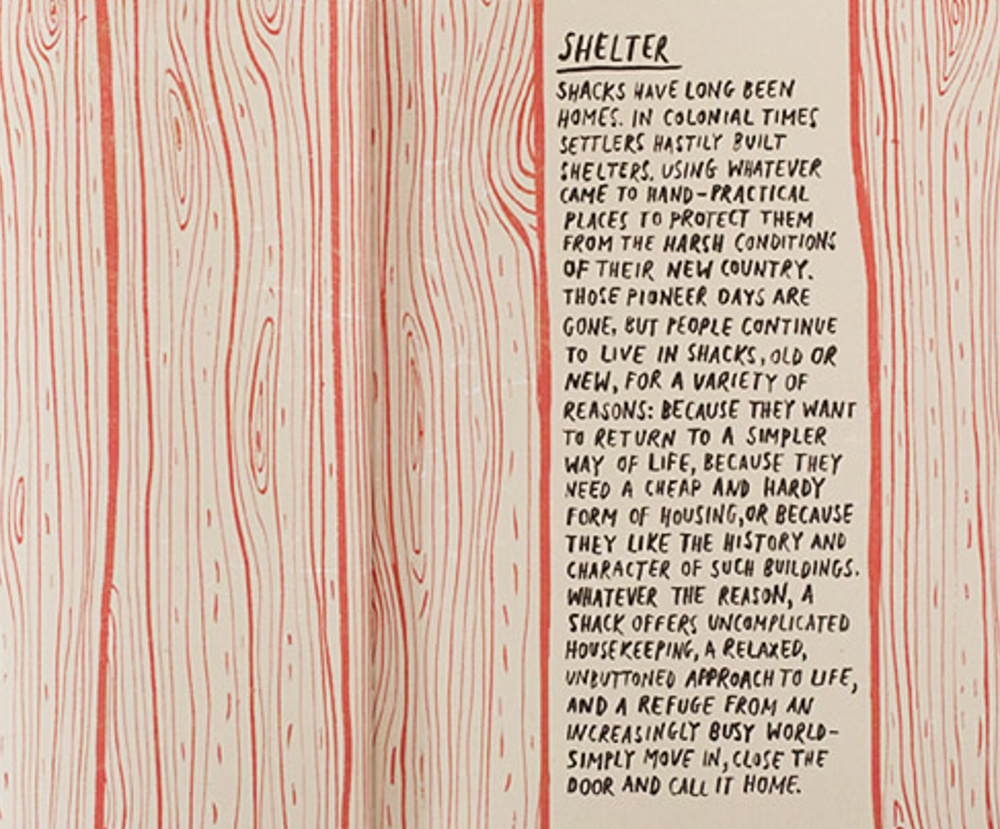 SHELTER
SHACKS HAVE LONG BEEN
HOMES. IN COLONIAL TIMES
SETTLERS HASTILY BUILT
SHELTERS. USING WHATEVER
CAME TO HAND-PRACTICAL
PLACES TO PROTECT THEM
FROM THE HARSH CONDITIONS
OF THEIR NEW COUNTRY.
THOSE PIONEER DAYS ARE
GONE, BUT PEOPLE CONTINUE
TO LIVE IN SHACKS, OLD OR
NEW, FOR A VARIETY OF
REASONS: BECAUSE THEY WANT
TO RETURN TO A SIMPLER
WAY OF LIFE, BECAUSE THEY
NEED A CHEAP AND HARDY
FORM OF HOUSING, OR BECAUSE
THEY LIKE THE HISTORY AND
CHARACTER OF SUCH BUILDINGS.
WHATEVER THE REASON, A
SHACK OFFERS UNCOMPLICATED
HOUSEKEEPING, A RELAXED,
UNBUTTONED APPROACH TO LIFE,
AND A REFUGE FROM AN
INCREASINGLY BUSY WORLD-
SIMPLY MOVE IN, CLOSE THE
DOOR AND CALL IT HOME.